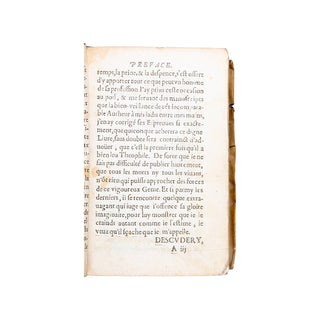 PREFACE.
temps, la peine, & la despence, s'est offert
d'y apporter tout ce que peut vn homme
de sa profession I'ay pris ceste occasion
au poil, & me seruant des manuscripts
que la bien-veillance de cét incompa-
rable Autheur à mis iadis entre mes mains,
i'en ay corrigé ses Espreuues si exacte-
ment, que quiconque achetera ce digne
Liure, sans doubte sera contrainct d'ad-
uoüer, que c'est la premiere fois qu'il a
bien leu Theophile. De sorte que ie ne
fais pas difficulté de publier hautement,
que tous les morts ny tous les viuans,
n'ōt rien qui puisse approcher des forces
de ce vigoureux Genie. Et si parmy les
derniers, il se rencontre quelque extra-
uagant qui iuge que i'offence sa gloire
imaginaire, pour luy monstrer que ie le
crains autant comme ie l'estime, ie
veux qu'il sçache que ie m'appelle.
DESCVDERY,
A iij